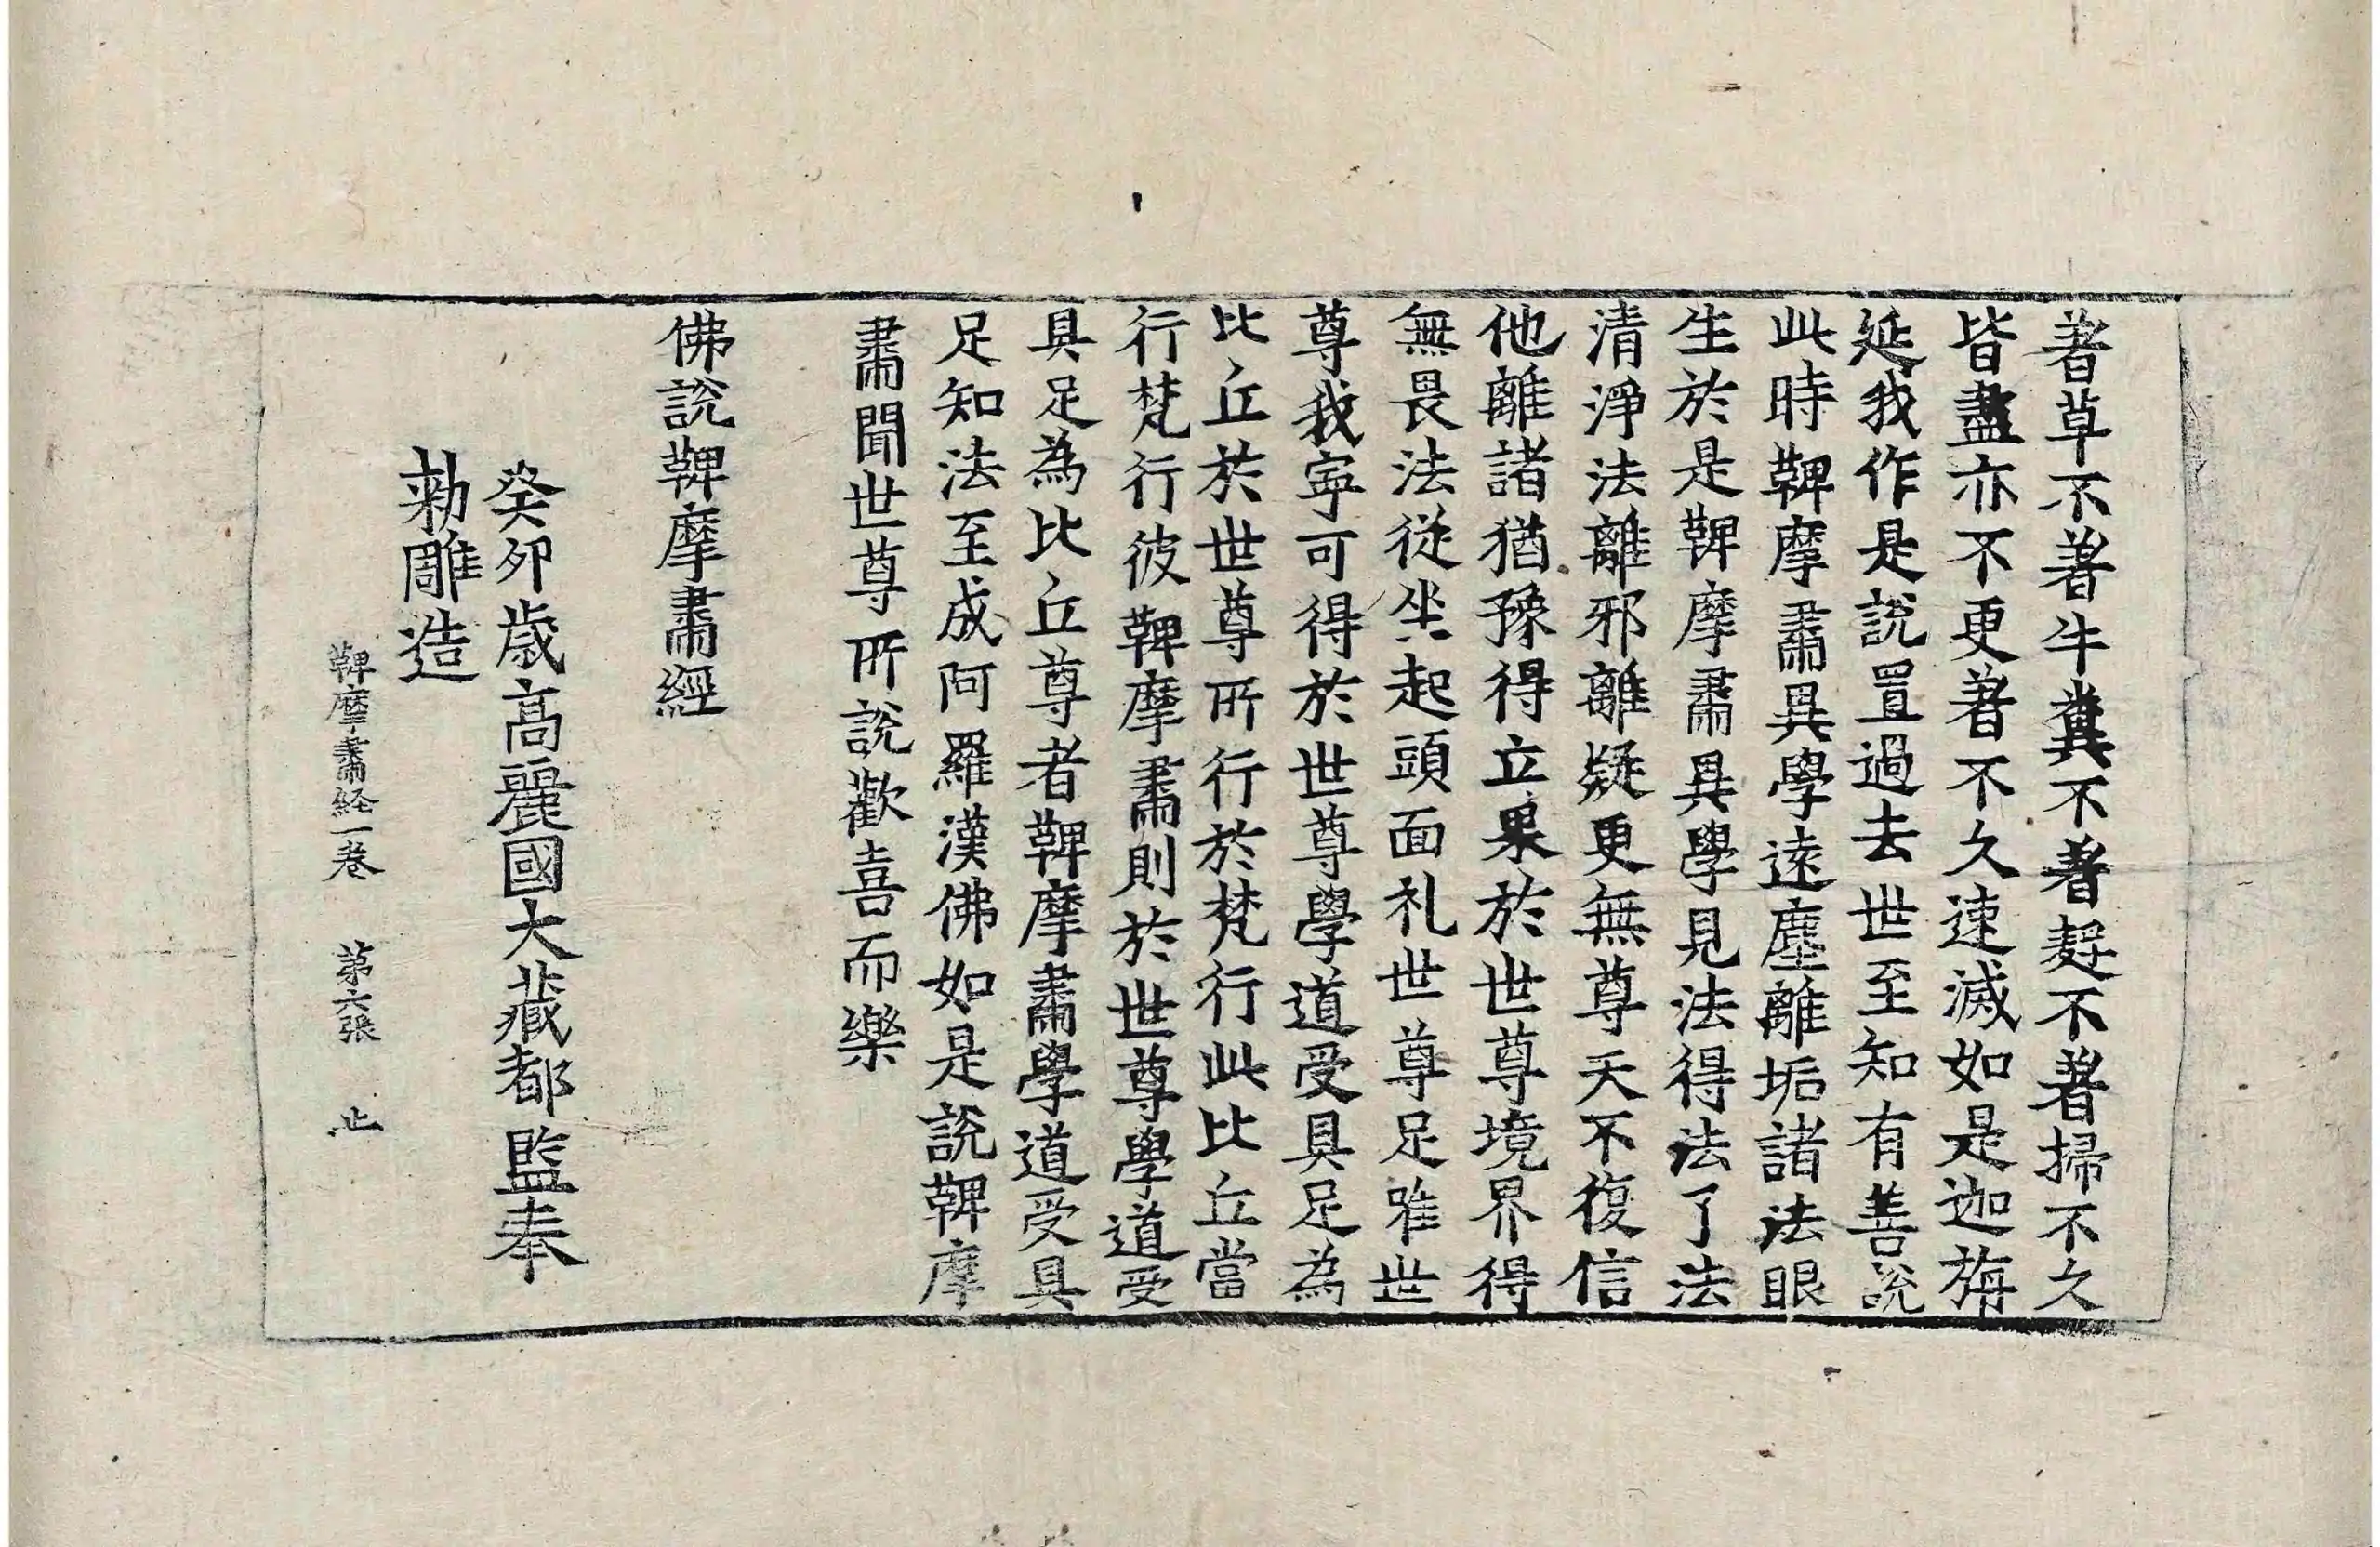 著草不著牛糞不著麨不著掃不久
皆盡亦不更著不久速滅如是迦旃
延我作是說置過去世至知有善說
此時鞞摩肅異學遠塵離垢諸法眼
生於是鞞摩肅異學見法得法了法
清淨法離邪離疑更無尊天不復信
他離諸猶豫得立果於世尊境界得
無畏法從坐起頭面礼世尊足唯世
尊我寧可得於世尊學道受具足為
比丘於世尊所行行於梵行此比丘當
行梵行彼鞞摩肅則於世尊學道受
具足為比丘尊者鞞摩肅學道受具
足知法至成阿羅漢佛如是說鞞摩
肅聞世尊所說歡喜而樂
佛說鞞摩肅經
癸卯歲高麗國大藏都監奉
勅雕造
鞞摩肅経一卷 第六張 止